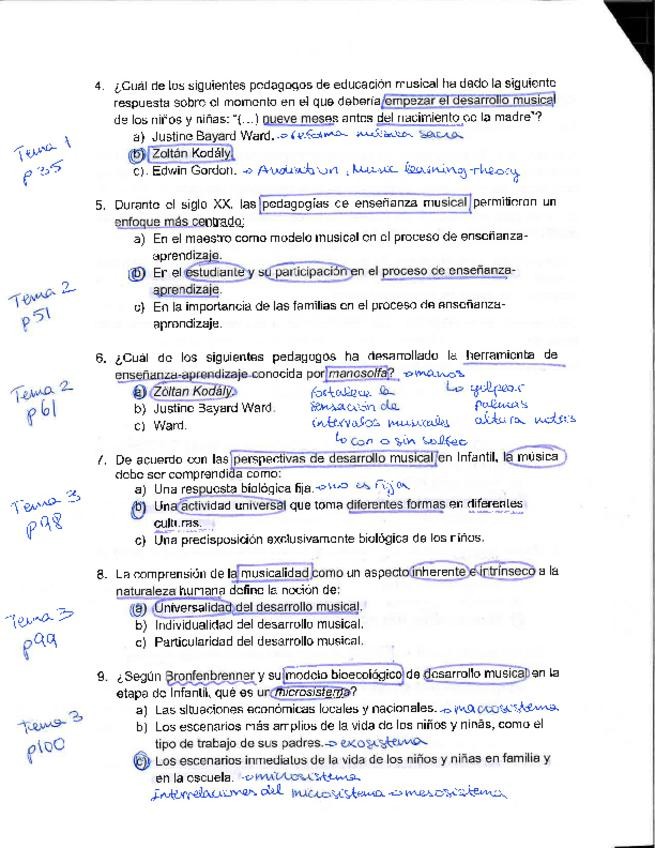 4. ¿Cuál de los siguientes pedagogos de educación musical ha dado la siguiente
respuesta sobre el momento en el que debería empezar el desarrollo musical
de los niños y niñas: "(...) nueve meses antes del nacimiento de la madre"?
a) Justine Bayard Ward. → reforma música sacra
Tema 1
p35
b) Zoltán Kodály.
c) Edwin Gordon. → Audiation, Music learning theory
5. Durante el siglo XX, las pedagogías de enseñanza musical permitieron un
enfoque más centrado:
a) En el maestro como modelo musical en el proceso de enseñanza-
aprendizaje.
Tema 2
p51
b) En el estudiante y su participación en el proceso de enseñanza-
aprendizaje.
c) En la importancia de las familias en el proceso de enseñanza-
aprendizaje.
6. ¿Cuál de los siguientes pedagogos ha desarrollado la herramienta de
enseñanza-aprendizaje conocida por manosolfa? → manos
Tema 2
p61
a) Zoltan Kodály.
b) Justine Bayard Ward.
c) Ward.
fortalece la
sensación de
intervalos musicales
↳ con o sin solfeo
↳ golpear
palmas
altura notas
7. De acuerdo con las perspectivas de desarrollo musical en Infantil, la música
debe ser comprendida como:
a) Una respuesta biológica fija. → no es fija
Tema 3
p98
b) Una actividad universal que toma diferentes formas en diferentes
culturas.
c) Una predisposición exclusivamente biológica de los niños.
8. La comprensión de la musicalidad como un aspecto inherente e intrínseco a la
naturaleza humana define la noción de:
Tema 3
p99
a) Universalidad del desarrollo musical.
b) Individualidad del desarrollo musical.
c) Particularidad del desarrollo musical.
9. ¿Según Bronfenbrenner y su modelo bioecológico de desarrollo musical en la
etapa de Infantil, qué es un microsistema?
a) Las situaciones económicas locales y nacionales. → macrosistema
Tema 3
p100
b) Los escenarios más amplios de la vida de los niños y niñas, como el
tipo de trabajo de sus padres. → exosistema
c) Los escenarios inmediatos de la vida de los niños y niñas en familia y
en la escuela. → microsistema
Interrelaciones del microsistema → mesosistema